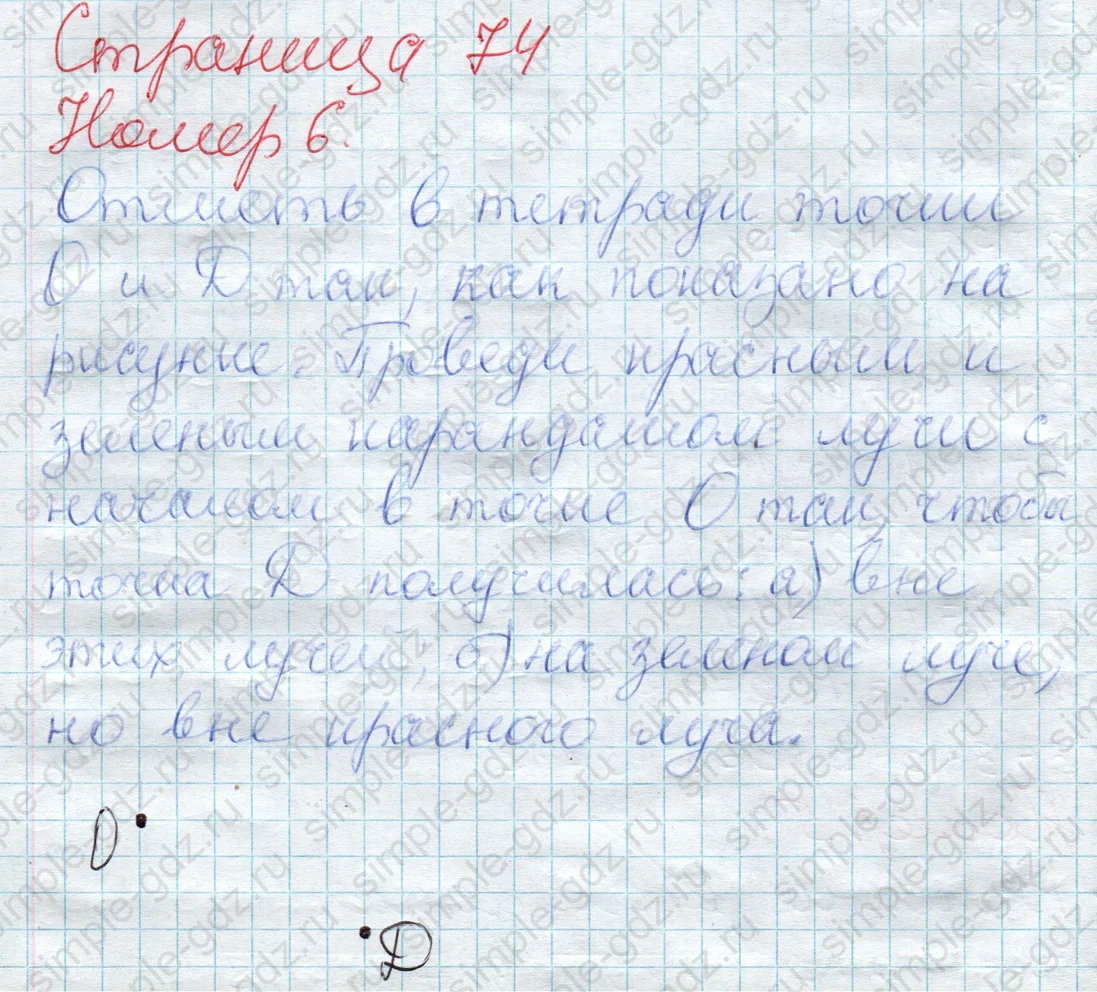 Страница 74
Номер 6.
Отметь в тетради точки
О и D так, как показано на
рисунке. Проведи красным и
зеленым карандашом лучи с
началом в точке О так, чтобы
точка D получилась: а) вне
этих лучей; б) на зеленом луче,
но вне красного луча.
О
D
simple-gdz.ru